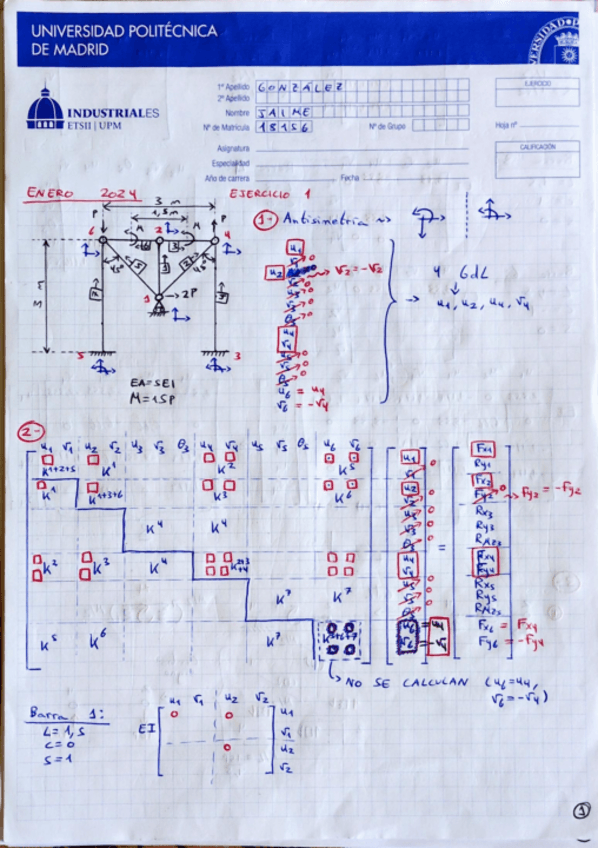 UNIVERSIDAD POLITÉCNICA
DE MADRID
INDUSTRIALES
ETSII | UPM
1º Apellido GONZÁLEZ
2º Apellido
Nombre JAIME
Nº de Matrícula 18156 Nº de Grupo
Asignatura
Especialidad
Año de carrera Fecha
EJERCICIO
Hoja nº
CALIFICACIÓN
ENERO 2024 EJERCICIO 1
3 m
1,5 m
P M M P
6 2 4
45º 45º
3 m
1 2P
5 3
EA=5EI
M=1.5P
1- Antisimetría
u1
u2
v2=-v2
u6 = u4
v6 = -v4
4 GdL
u1, u2, u4, v4
2-
u1 v1 u2 v2 u3 v3 θ3 u4 v4 u5 v5 θ5 u6 v6
K1+2+5 K1 K2 K5
K1 K1+3+6 K3 K6
K4 K4
K2 K3 K4
K7 K7
K5 K6 K7 K5+6+7
Fx1
Ry1
Fx2
Fy2 Fy2 = -Fy2
Rx3
Ry3
RMz3
Fx4
Fy4
Rx5
Ry5
RMz5
Fx6 = Fx4
Fy6 = -Fy4
NO SE CALCULAN (u6=u4,
v6=-v4)
Barra 1:
L=1,5
C=0
S=1
EI
u1 v1 u2 v2
u1
v1
u2
v2
1